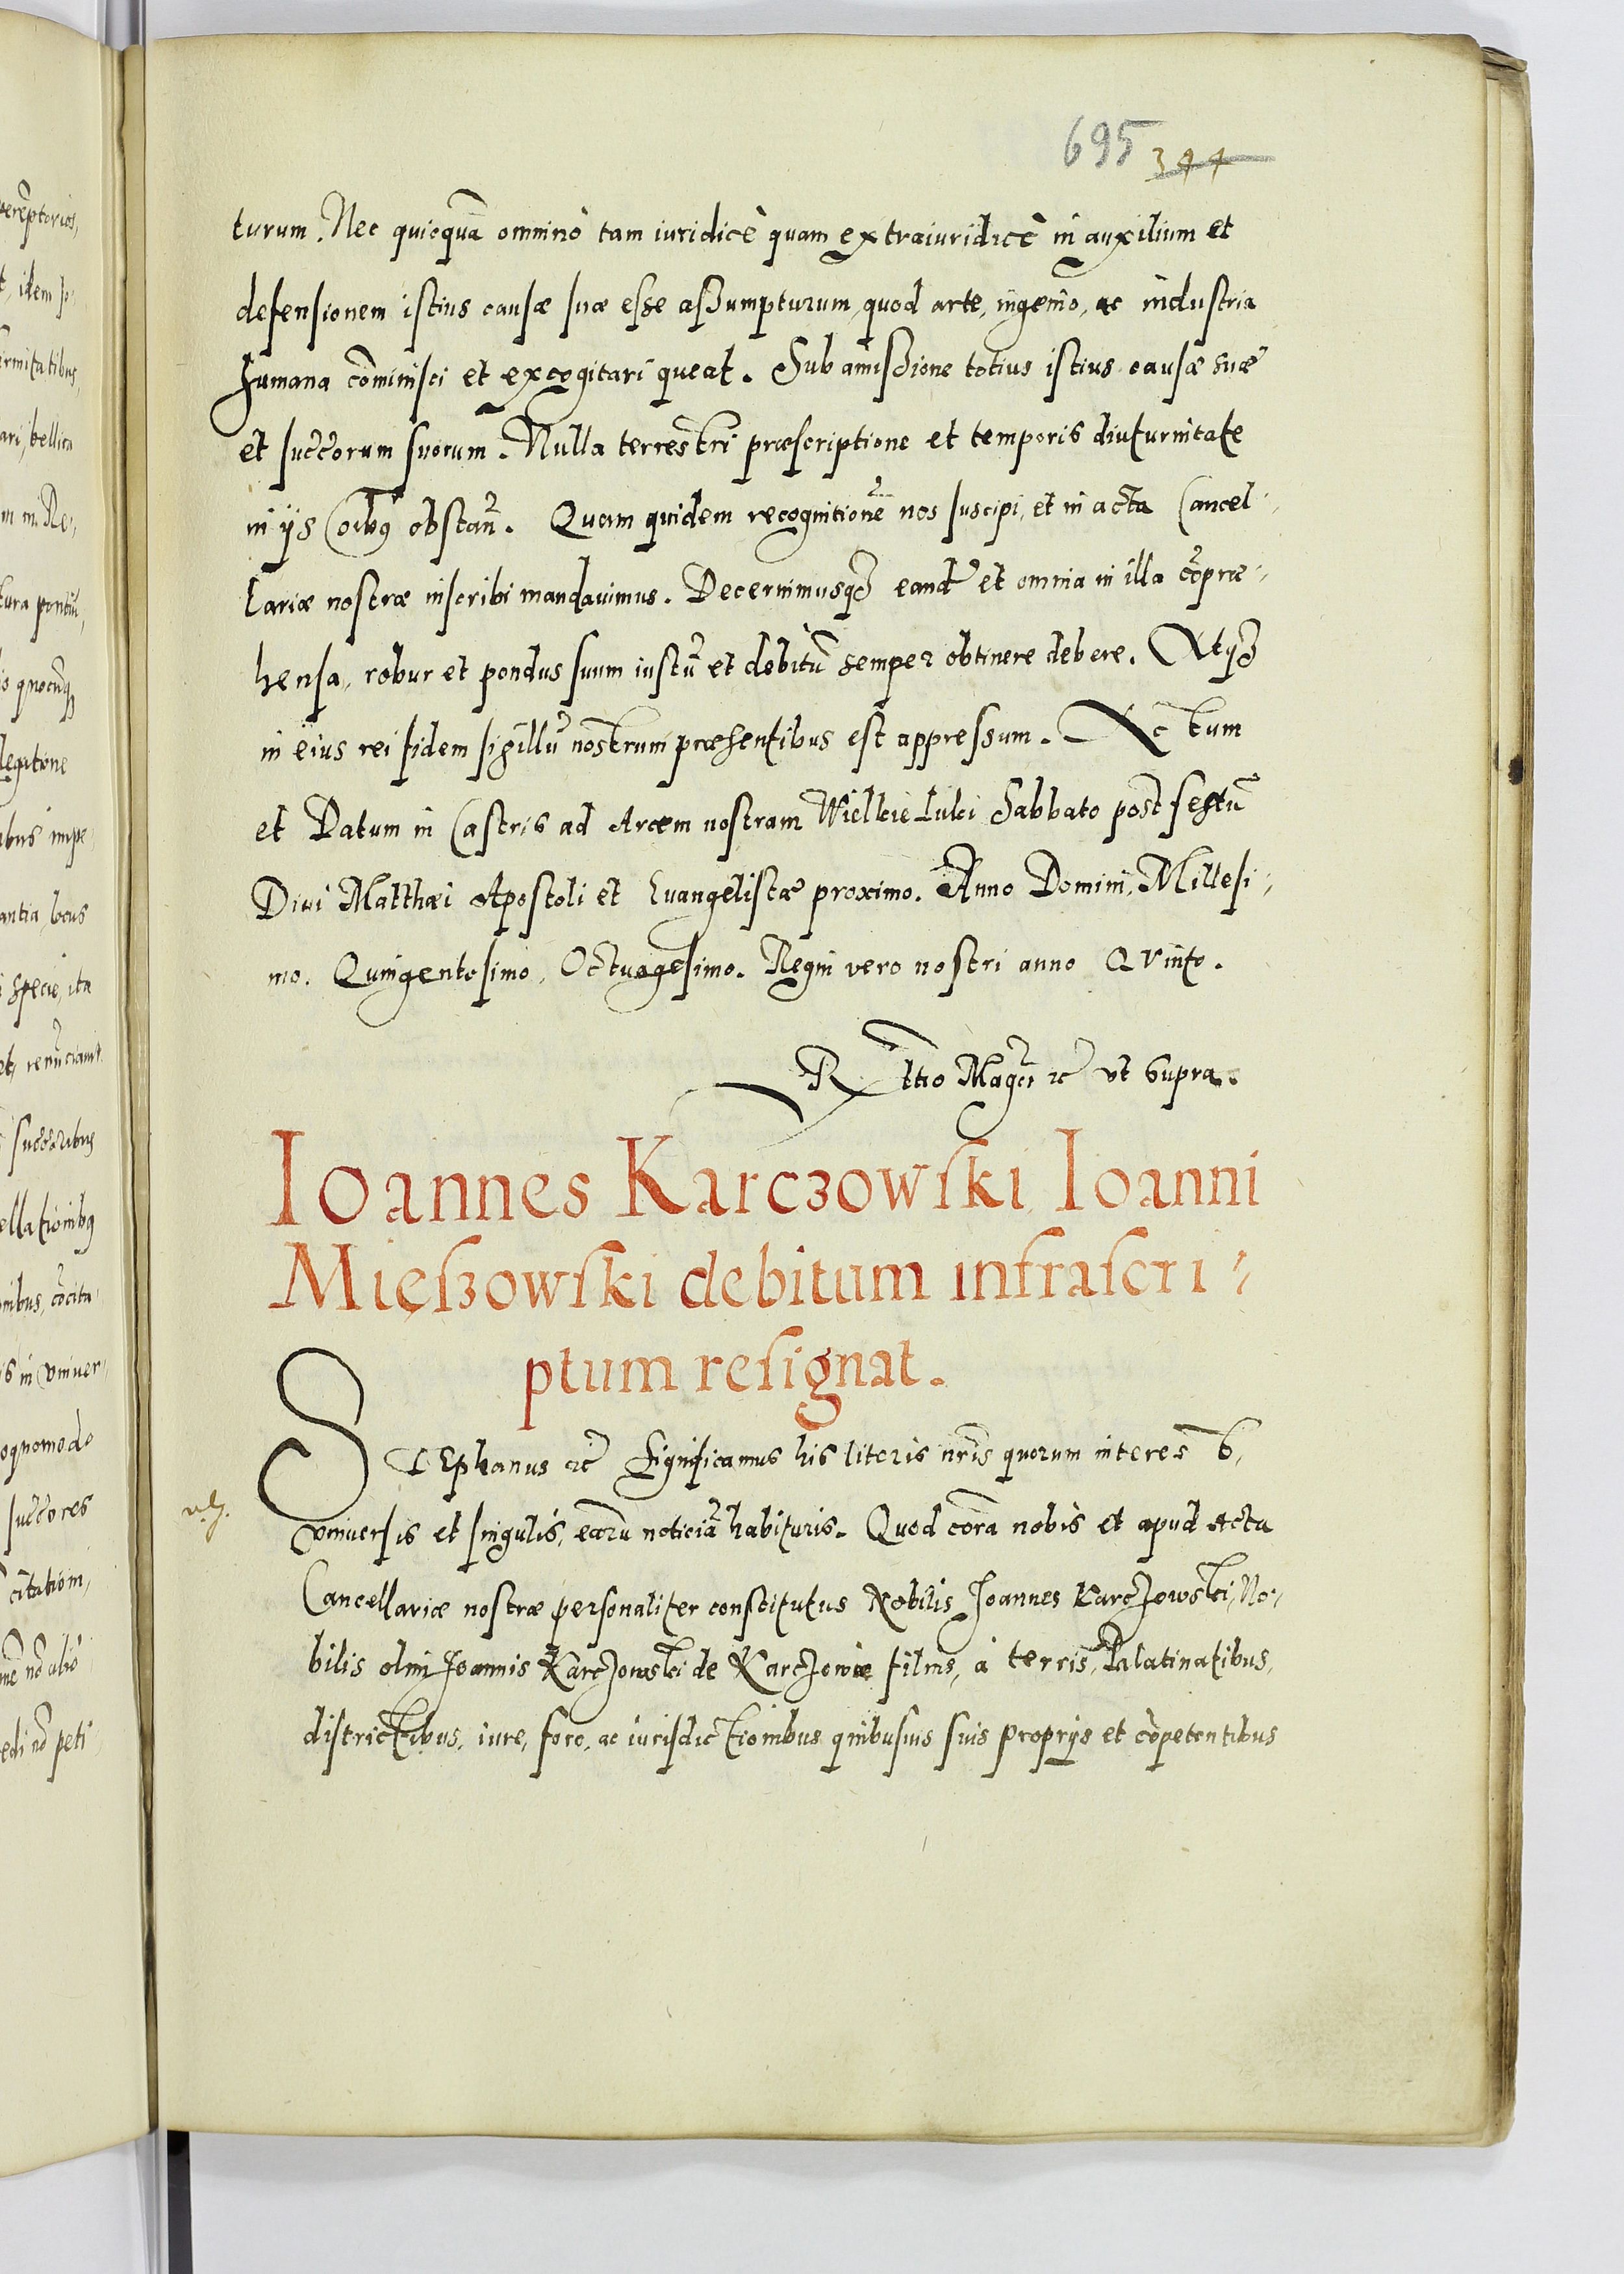 695 344
turum. Nec quicquā omninò tam iuridicè quam extraiuridicè in auxilium et
defensionem istius causæ suæ esse aßumpturum, quod arte, ingenio, ac industria
humana cōminisci et excogitari queat. Sub amißione totius istius causæ suæ
et succorum suorum. Nulla terrestri præscriptione et temporis diuturnitate
in ijs obstan. Quam quidem recognitionē nos suscipi, et in acta Cancel-
lariæ nostræ inscribi mandauimus. Decernimusq₃ eand et omnia in illa cōpræ-
hensa, robur et pondus suum iustū et debitū semper obtinere debere. Atq₃
in eius rei fidem sigillū nostrum præsentibus est appressum. Actum
et Datum in Castris ad Arcem nostram Wielkie Luki Sabbato post festū
Diui Matthæi Apostoli et Euangelistæ proximo. Anno Domini, Millesi-
mo. Quingentesimo, Octuagesimo. Regni vero nostri anno Qvinto.
R ltio Magci &c vt supra.
Ioannes Karczowski Ioanni
Mießowski debitum infrascri-
ptum resignat.
STEphanus &c Significamus his literis nris quorum interest,
vniuersis et singulis, earū noticiā habituris. Quod corā nobis et apud Acta
Cancellariæ nostræ personaliter constitutus Nobilis Joannes Karczowski, No-
bilis olim Joannis Karczowski de Karczowie filius, à terris, Palatinatibus,
districtibus, iure, foro, ac iurisdictionibus quibusuis suis proprijs et cōpetentibus